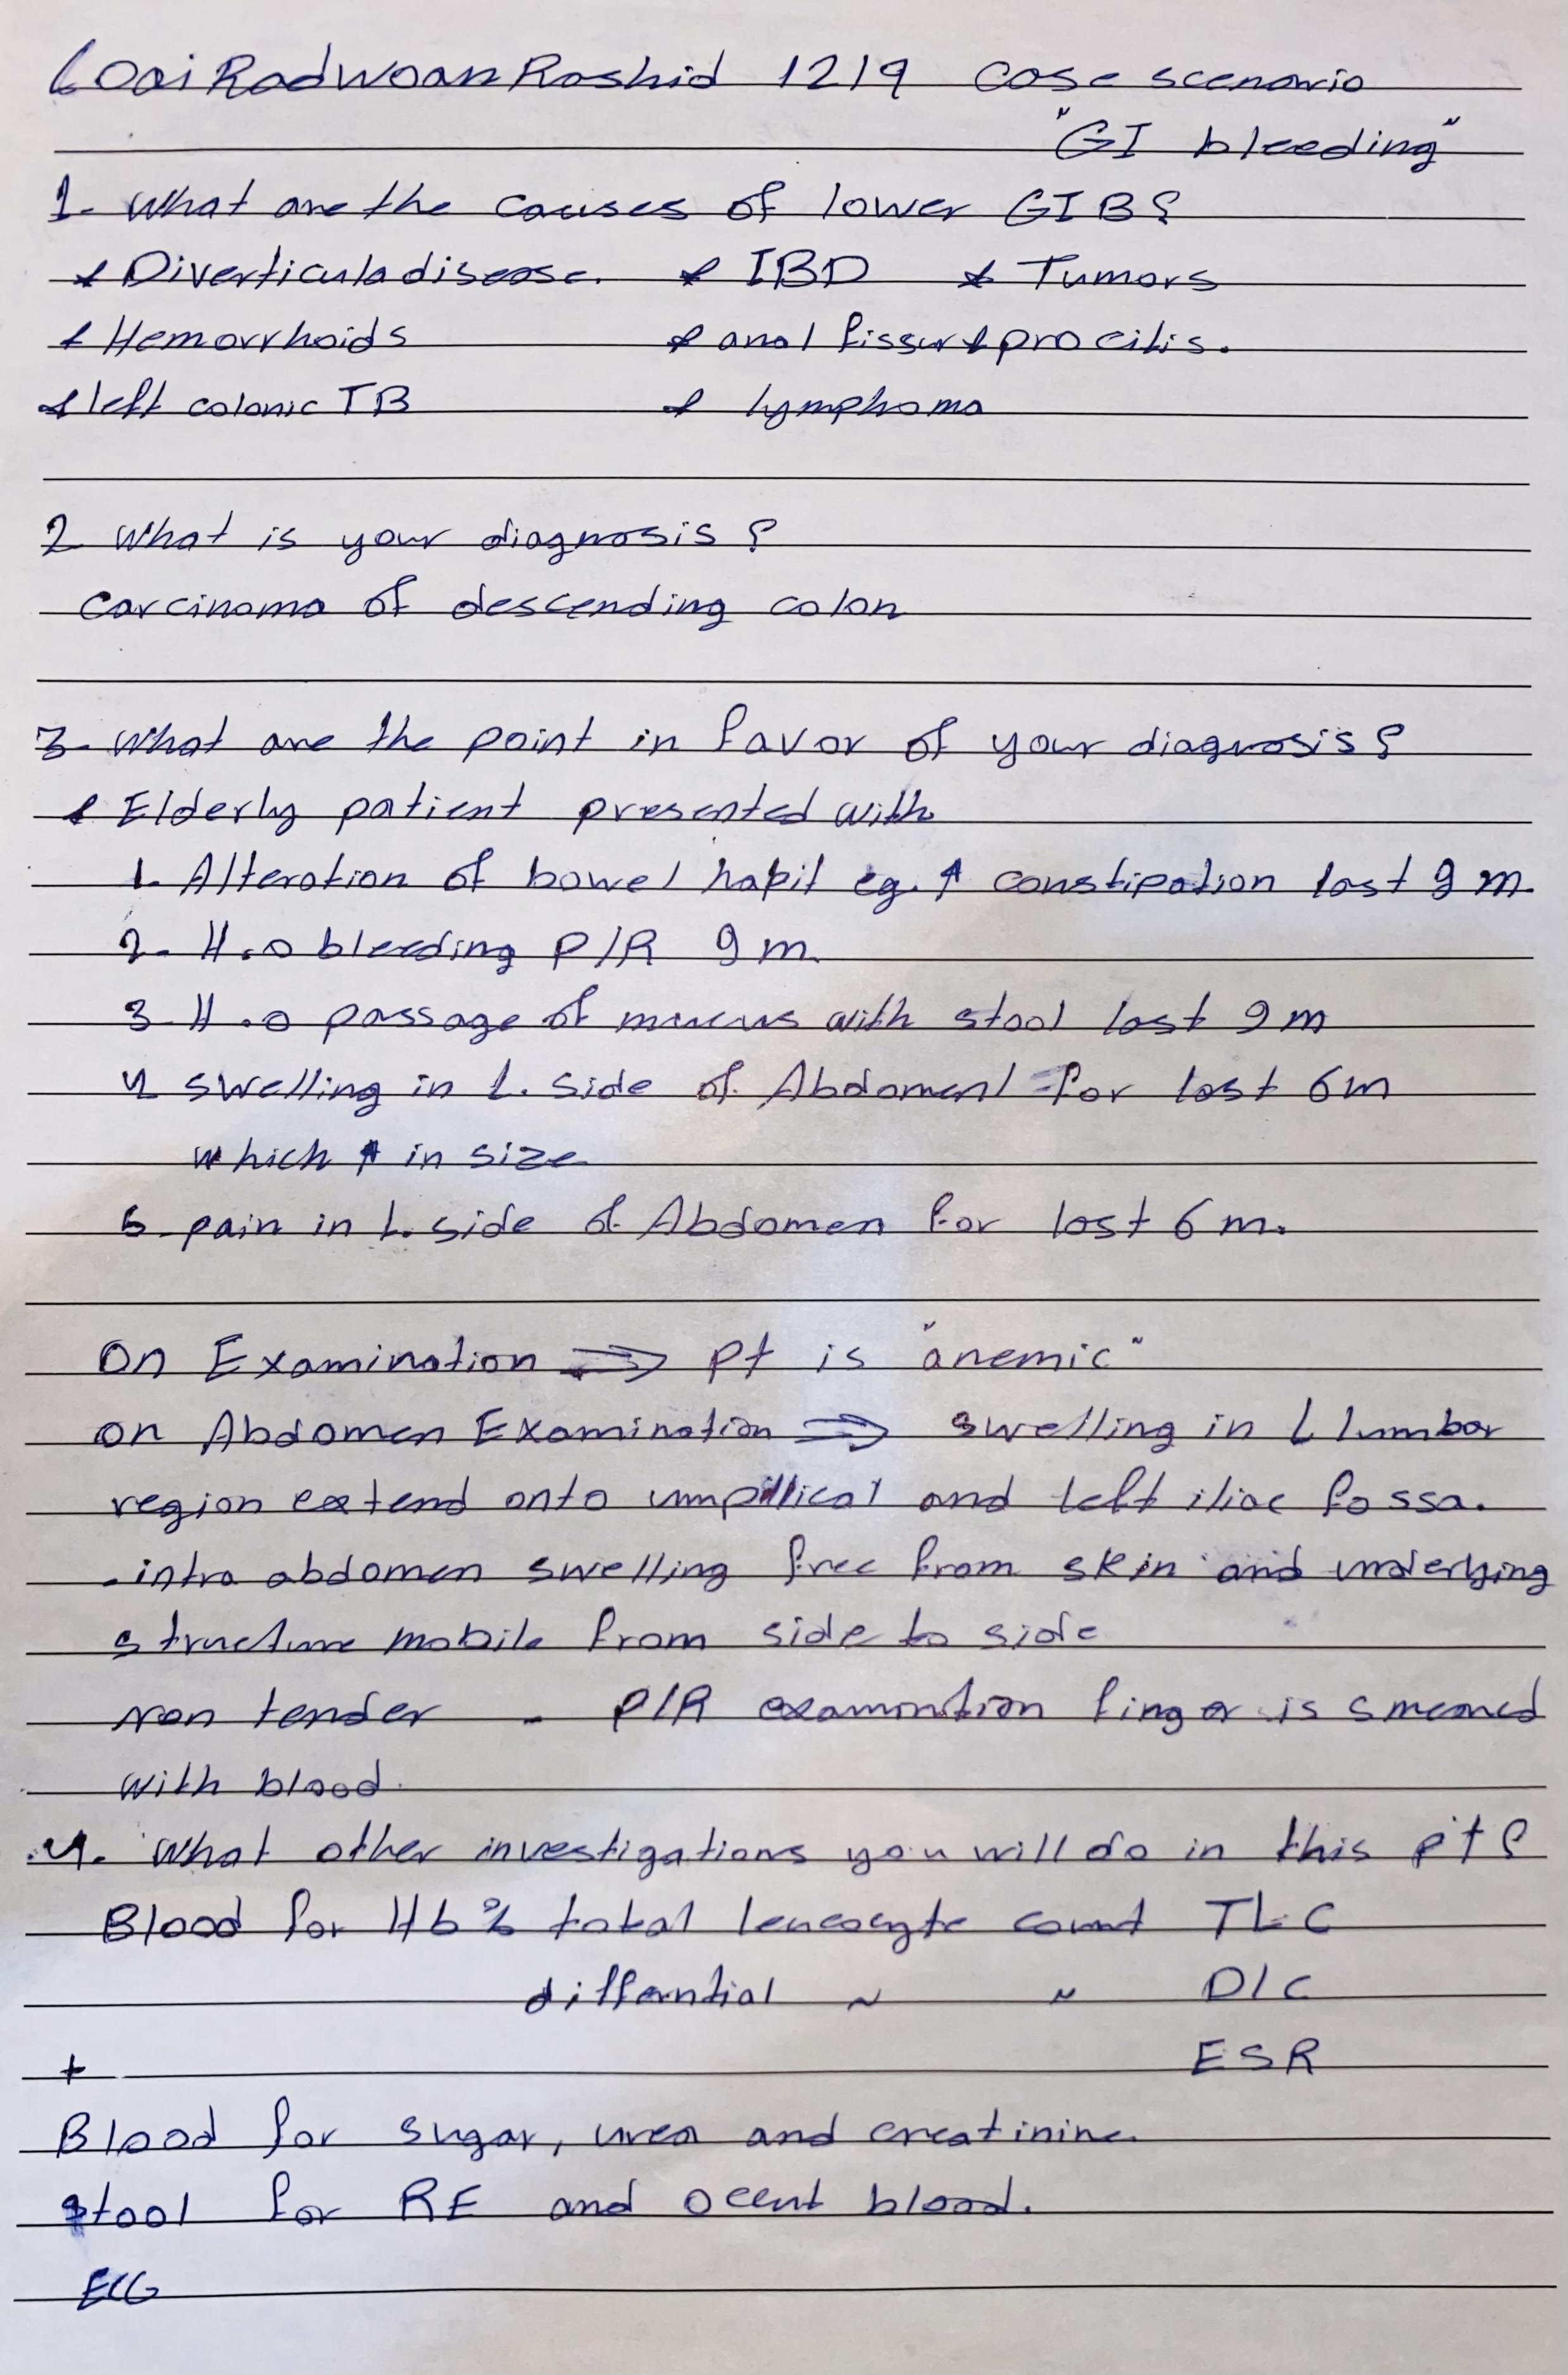 Loai Radwoan Rashid 1219 case scenario
"GI bleeding"
1- What are the causes of lower GIB?
* Diverticula disease. * IBD * Tumors
* Hemorrhoids * anal fissur & procitis.
* left colonic TB * lymphoma
2 What is your diagnosis?
carcinoma of descending colon
3- What are the point in favor of your diagnosis?
* Elderly patient presented with
1- Alteration of bowel habit eg. ↑ constipation last 9 m.
2- H.o bleeding P/R 9 m.
3- H.o passage of mucus with stool last 9 m
4 swelling in L. side of Abdomenl for last 6m
which ↑ in size
5- pain in L. side of Abdomen for last 6 m.
On Examination ⇒ pt is "anemic"
on Abdomen Examination ⇒ swelling in L lumbar
region extend onto umpilical and left iliac fossa.
- intra abdomen swelling free from skin and underlying
structure mobile from side to side
non tender - P/R examination finger is smeared
with blood.
4. What other investigations you will do in this pt?
Blood for Hb% total leucocyte count TLC
differntial " " DLC
+ ESR
Blood for sugar, urea and creatinine.
stool for RE and occut blood.
ECG